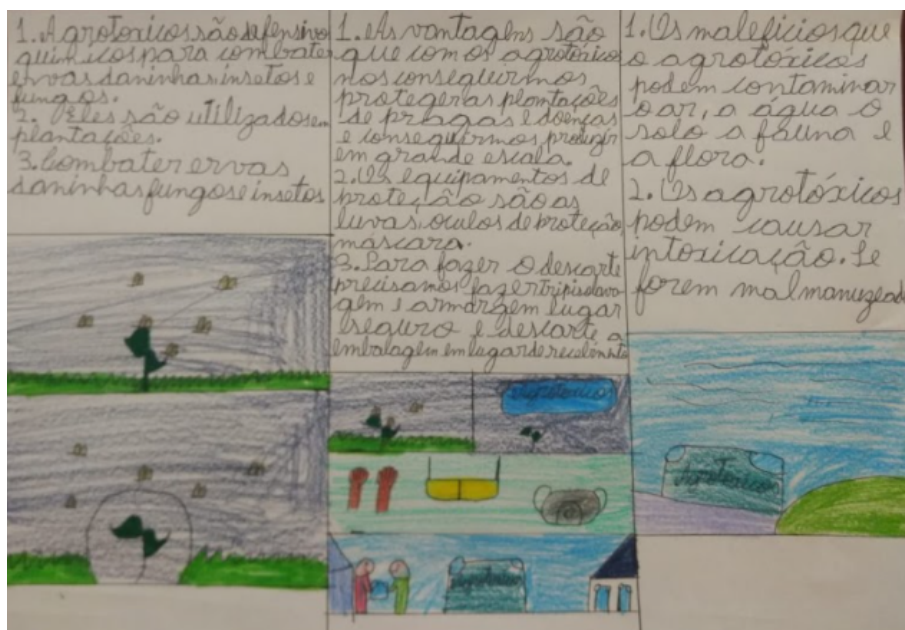 1. Agrotoxicos são defensivo
quimicos para combater
ervas daninhas, insetos e
fungos.
2. Eles são utilizados em
plantações.
3. Combater ervas
daninhas fungos e insetos
1. As vantagens são
que com os agrotóxicos
nos conseguirmos
proteger as plantações
de pragas e doenças
e conseguirmos produzir
em grande escala.
2. Os equipamentos de
proteção são as
luvas, oculos de proteção
máscara.
3. Para fazer o descarte
precisamos fazer
lugar
seguro e descarte a
embalagem em lugar de
Agrotoxicos
Agrotoxico
1. Os maleficios que
o agrotóxicos
podem contaminar
o ar, a água o
solo a fauna e
a flora.
2. Os agrotóxicos
podem causar
intoxicação. Se
forem mal manuzead
Agrotoxicos